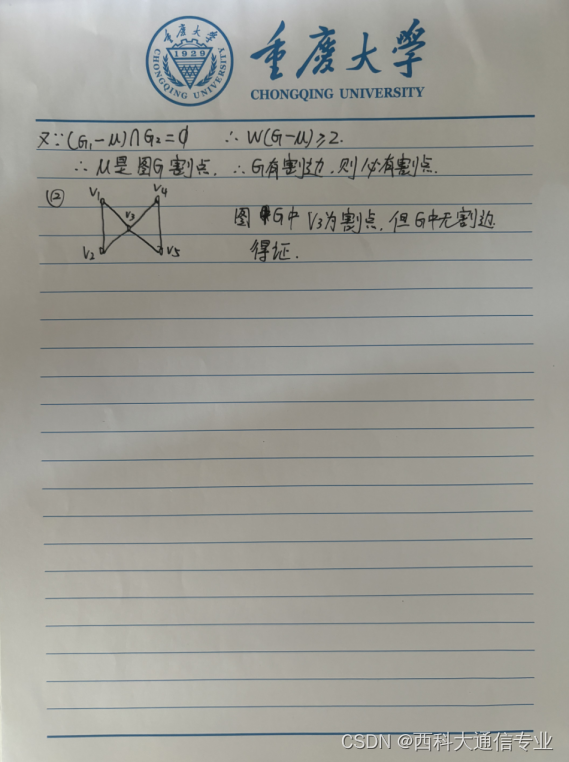 重庆大学
CHONGQING UNIVERSITY
1929
重庆大学
CHONGQING UNIVERSITY
又∵(G₁-u)∩G₂=∅ ∴W(G-u)≥2.
∴u是图G割点. ∴G有割边,则必有割点.
②
V₁ V₄
V₃
V₂ V₅
图G中V₃为割点,但G中无割边
得证.
CSDN @西科大通信专业